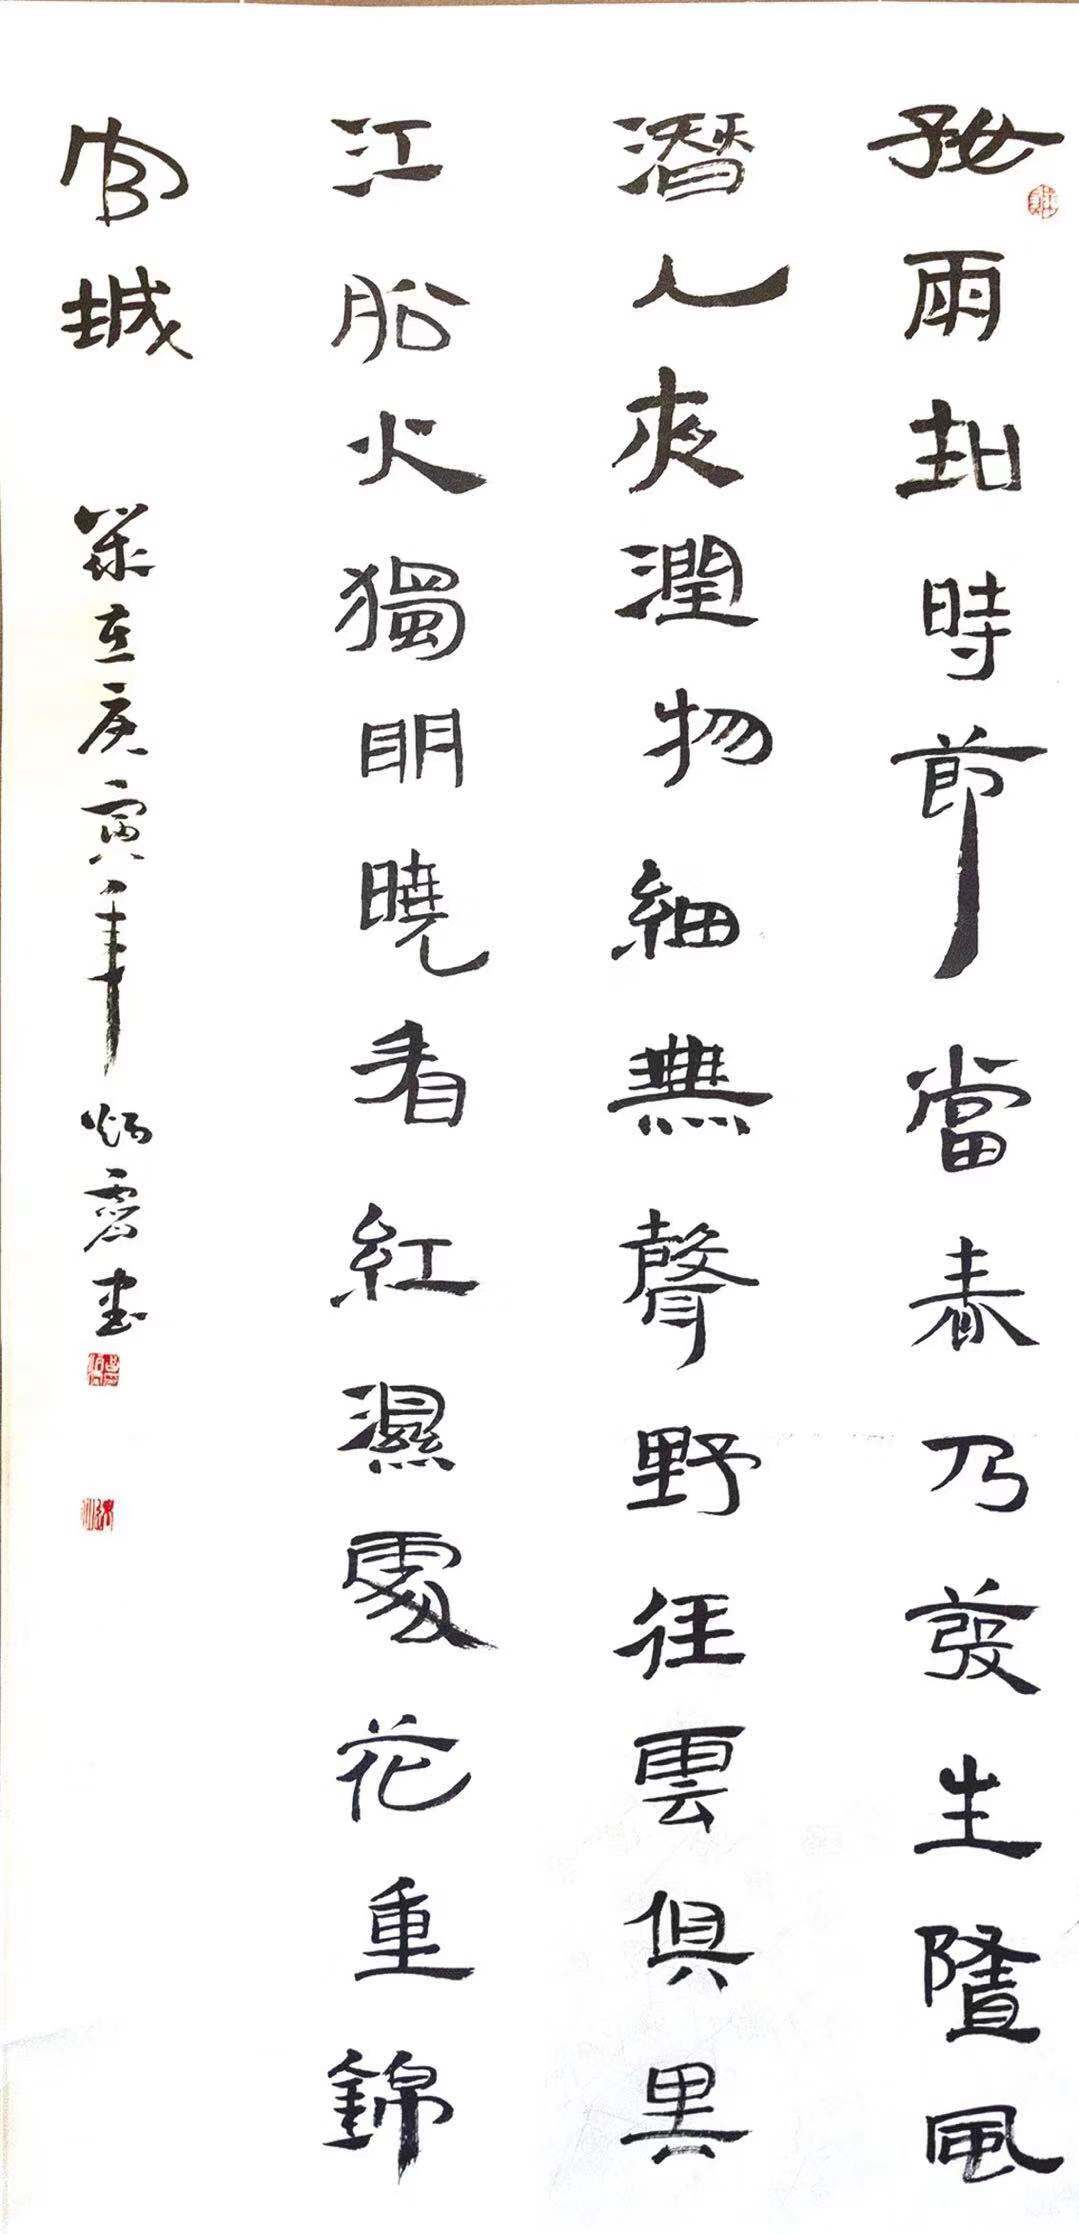 好雨知時節當春乃發生隨風
潛入夜潤物細無聲野徑雲俱黑
江船火獨明曉看紅濕處花重錦
官城 歲在庚寅年 炳書